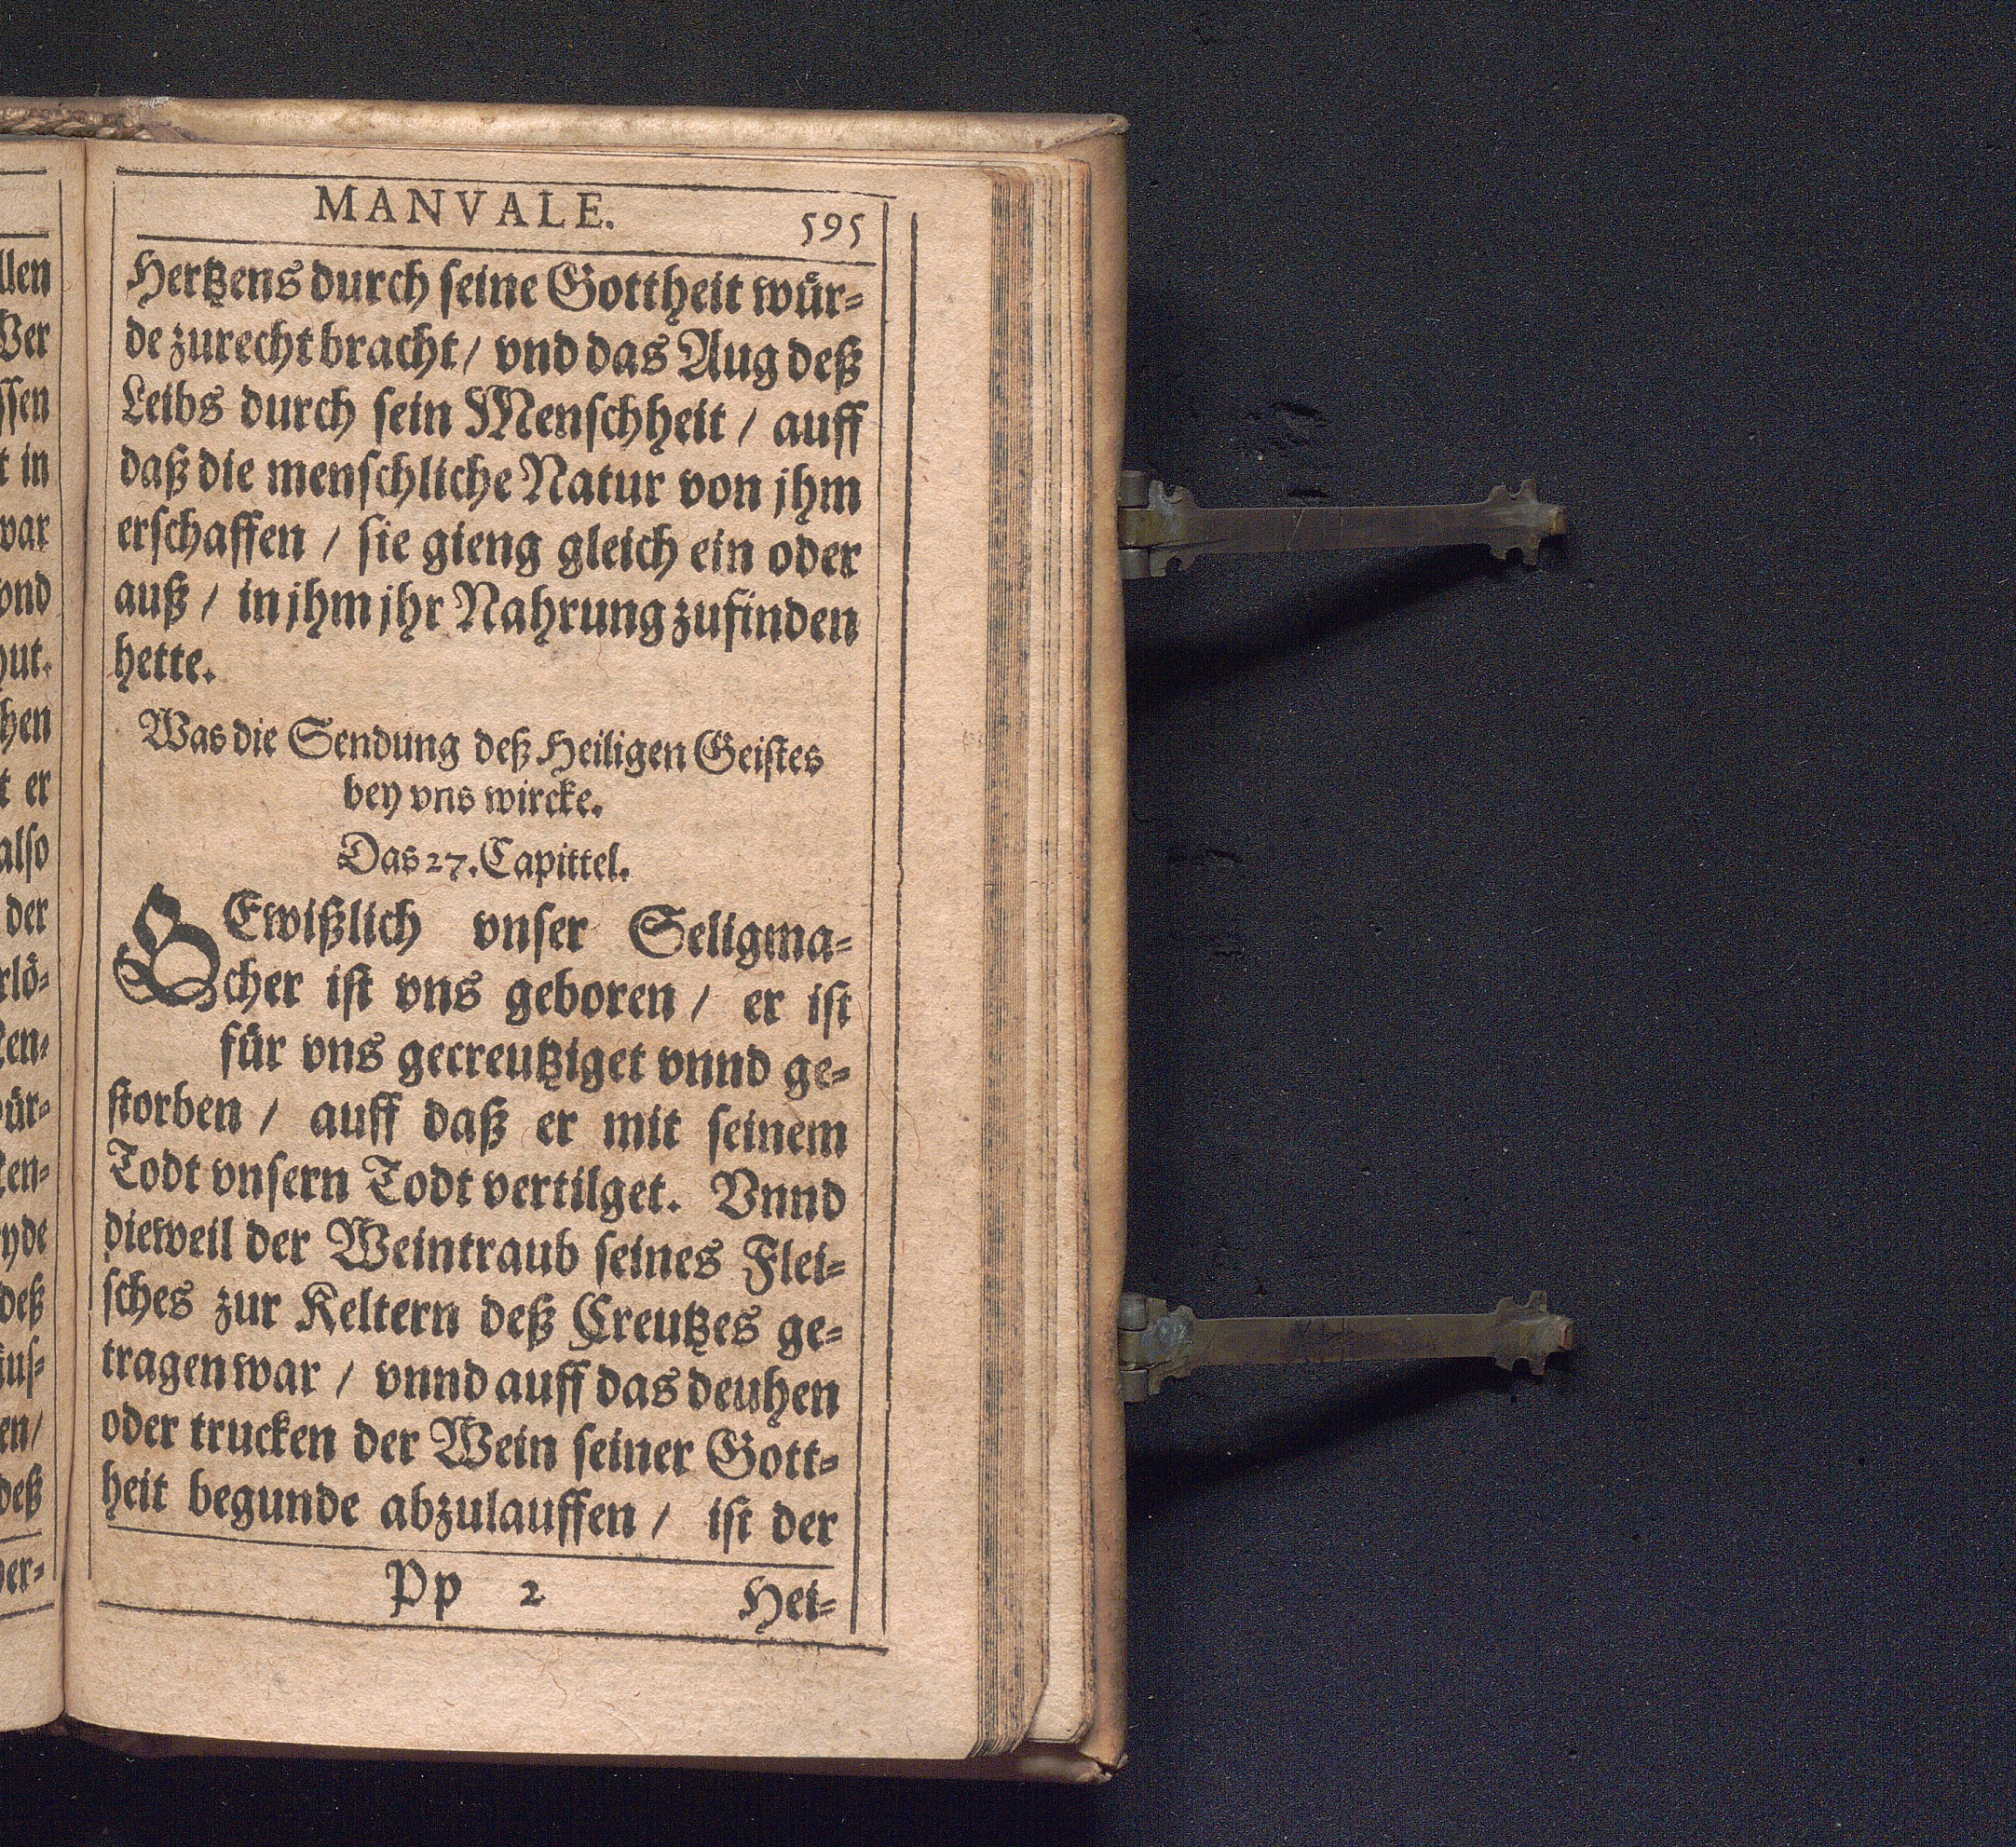 MANVALE. 595
Hertzens durch seine Gottheit wür-
de zurecht bracht / vnd das Aug deß
Leibs durch sein Menschheit / auff
daß die menschliche Natur von jhm
erschaffen / sie gieng gleich ein oder
auß / in jhm jhr Nahrung zufinden
hette.
Was die Sendung deß Heiligen Geistes
bey vns wircke.
Das 27. Capittel.
GEwißlich vnser Seligma-
cher ist vns geboren / er ist
für vns gecreutziget vnnd ge-
storben / auff daß er mit seinem
Todt vnsern Todt vertilget. Vnnd
dieweil der Weintraub seines Flei-
sches zur Keltern deß Creutzes ge-
tragen war / vnnd auff das deuhen
oder trucken der Wein seiner Gott-
heit begunde abzulauffen / ist der
Pp 2 Hei-